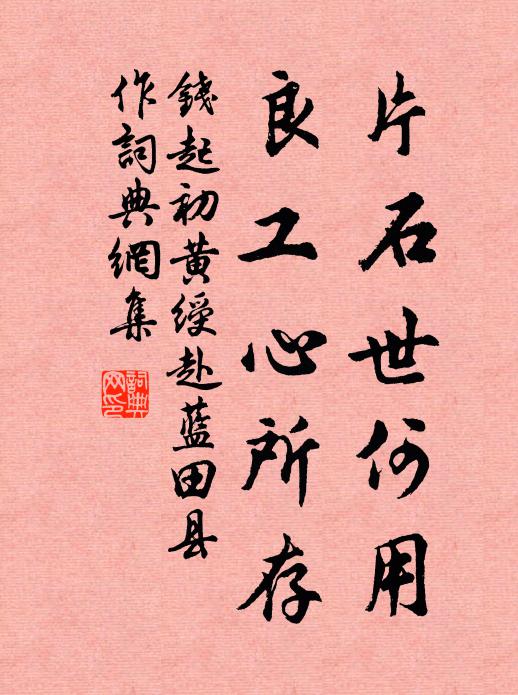 片石世何用
良工心所存
錢起初黃綬赴藍田县
作詞典網集
詞典
网印